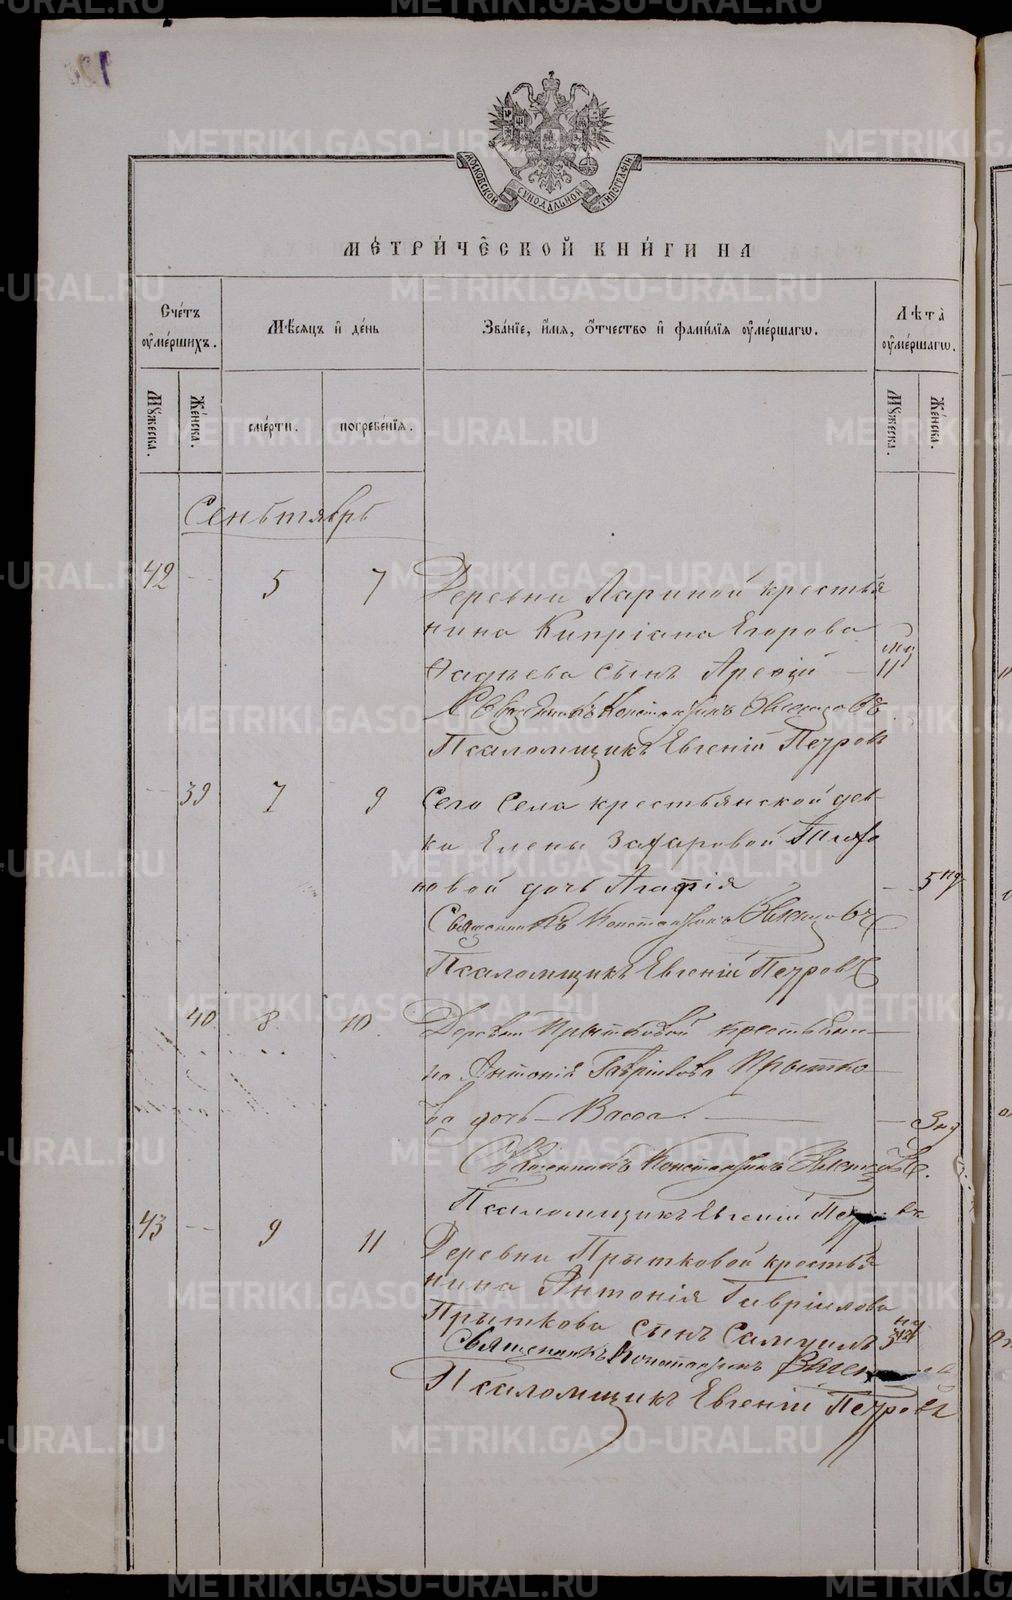 МОСКОВСКОЙ СѴНОДАЛЬНОЙ ТИПОГРАФІИ
МЕТРИЧЕСКОЙ КНИГИ НА
Счетъ умершихъ.
Мѣсяцъ и день
Званіе, имя, отчество и фамилія умершаго.
Лѣта умершаго.
Мужеска.
Женска.
смерти.
погребенія.
Мужеска.
Женска.
Сеньтябрь
42 5 7 Деревни Лариной крестья
нина Кипріана Егорова
Фадѣева сынъ Арсеній 11
Священникъ Константинъ
Псаломщикъ Евгеній Петровъ
39 7 9 Сего Села крестьянской дѣв
ки Елены Захаровой Тихо
новой дочь Агафія 5 нд
Священникъ Константинъ
Псаломщикъ Евгеній Петровъ
40 8 10 Деревни Прытковой крестьяни
на Антонія Гавріилова Прытко
ва дочь Васса. 3 нд
Священникъ Константинъ
Псаломщикъ Евгеній
43 9 11 Деревни Прытковой крестья
нина Антонія Гавріилова
Прыткова сынъ Самуилъ 3 нд
Священникъ Константинъ
Псаломщикъ Евгеній Петровъ
METRIKI.GASO-URAL.RU